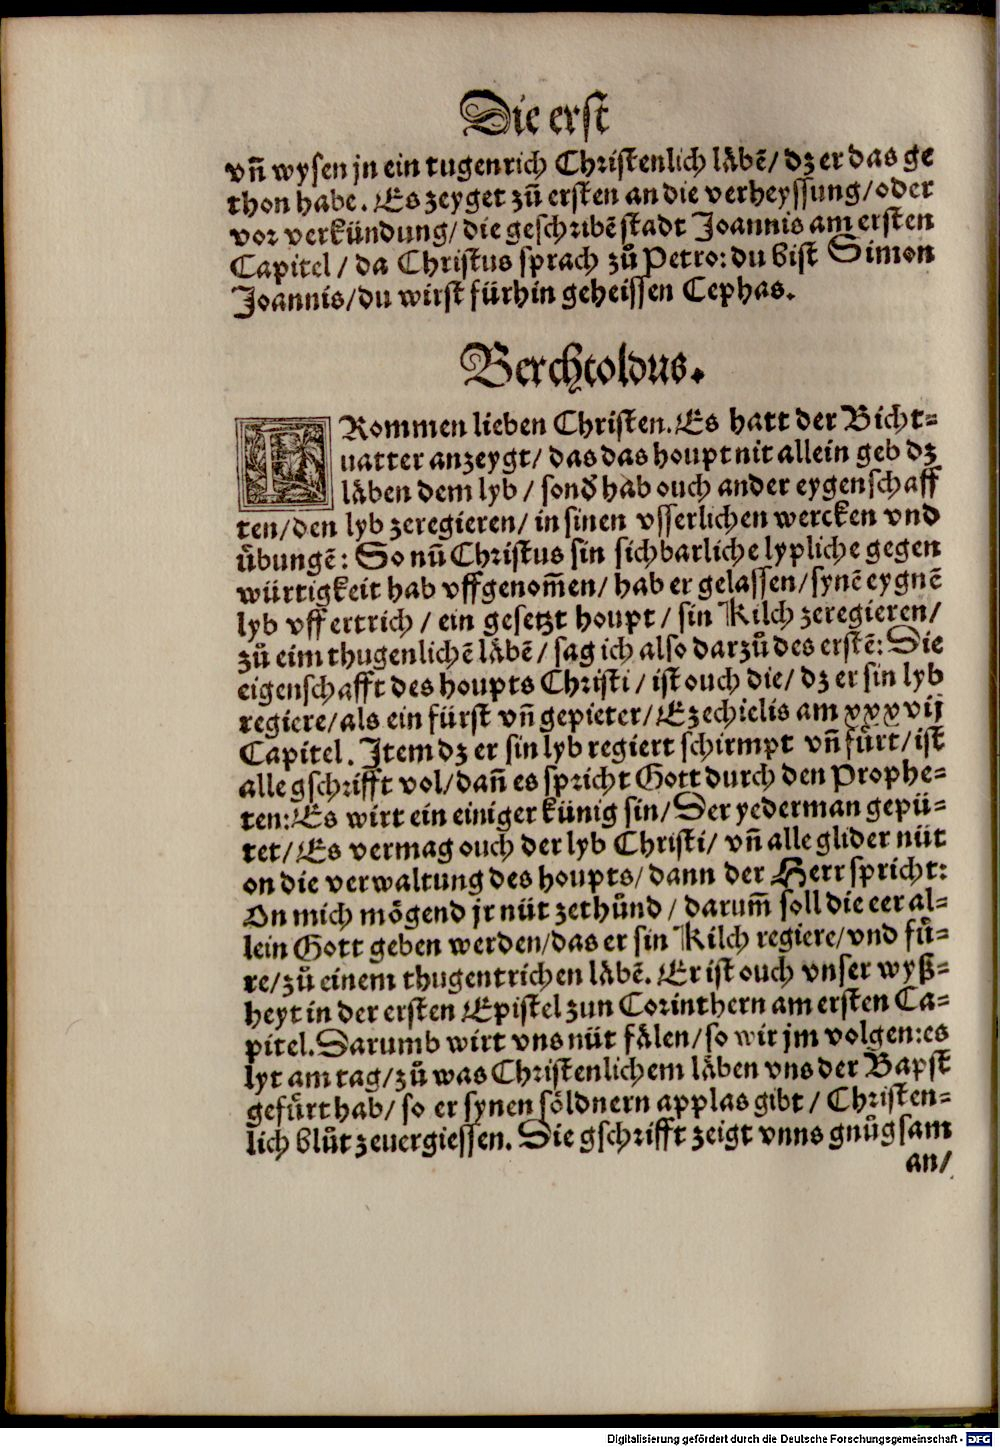 Die erst
vñ wysen jn ein tugenrich Christenlich läbẽ/ dz er das ge
thon habe. Es zeyget zů ersten an die verheyssung/oder
vor verkündung/ die geschribẽ stadt Joannis am ersten
Capitel / da Christus sprach zů Petro: du bist Simon
Joannis/du wirst fürhin geheissen Cephas.
Berchtoldus.
FRommen lieben Christen. Es hatt der Bicht-
uatter anzeygt/ das das houpt nit allein geb dz
läben dem lyb / sonđ hab ouch ander eygenschaff
ten/den lyb zeregieren/ in sinen vsserlichen wercken vnd
übungẽ: So nũ Christus sin sichbarliche lypliche gegen
würtigkeit hab vffgenom̃en/ hab er gelassen/synẽ eygnẽ
lyb vff ertrich / ein gesetzt houpt / sin Kilch zeregieren/
zů eim thugenlichẽ läbẽ / sag ich also darzů des erstẽ: Die
eigenschafft des houpts Christi / ist ouch die/ dz er sin lyb
regiere/als ein fürst vñ gepieter/Ezechielis am xxxvij
Capitel. Item dz er sin lyb regiert schirmpt vñ fůrt/ist
alle gschrifft vol/dañ es spricht Gott durch den Prophe-
ten: Es wirt ein einiger künig sin/Der yederman gepü-
tet/Es vermag ouch der lyb Christi/ vñ alle glider nüt
on die verwaltung des houpts/dann der Herr spricht:
On mich mögend jr nüt zethůnd / darum̃ soll die eer al-
lein Gott geben werden/das er sin Kilch regiere/vnd fů-
re/zů einem thugentrichen läbẽ. Er ist ouch vnser wyß-
heyt in der ersten Epistel zun Corinthern am ersten Ca-
pitel. Darumb wirt vns nüt fälen/so wir jm volgen:es
lyt am tag/zů was Christenlichem läben vns der Bapst
gefůrt hab/ so er synen söldnern applas gibt / Christen-
lich blůt zeuergiessen. Die gschrifft zeigt vnns gnůgsam
an/
Digitalisierung gefördert durch die Deutsche Forschungsgemeinschaft - DFG